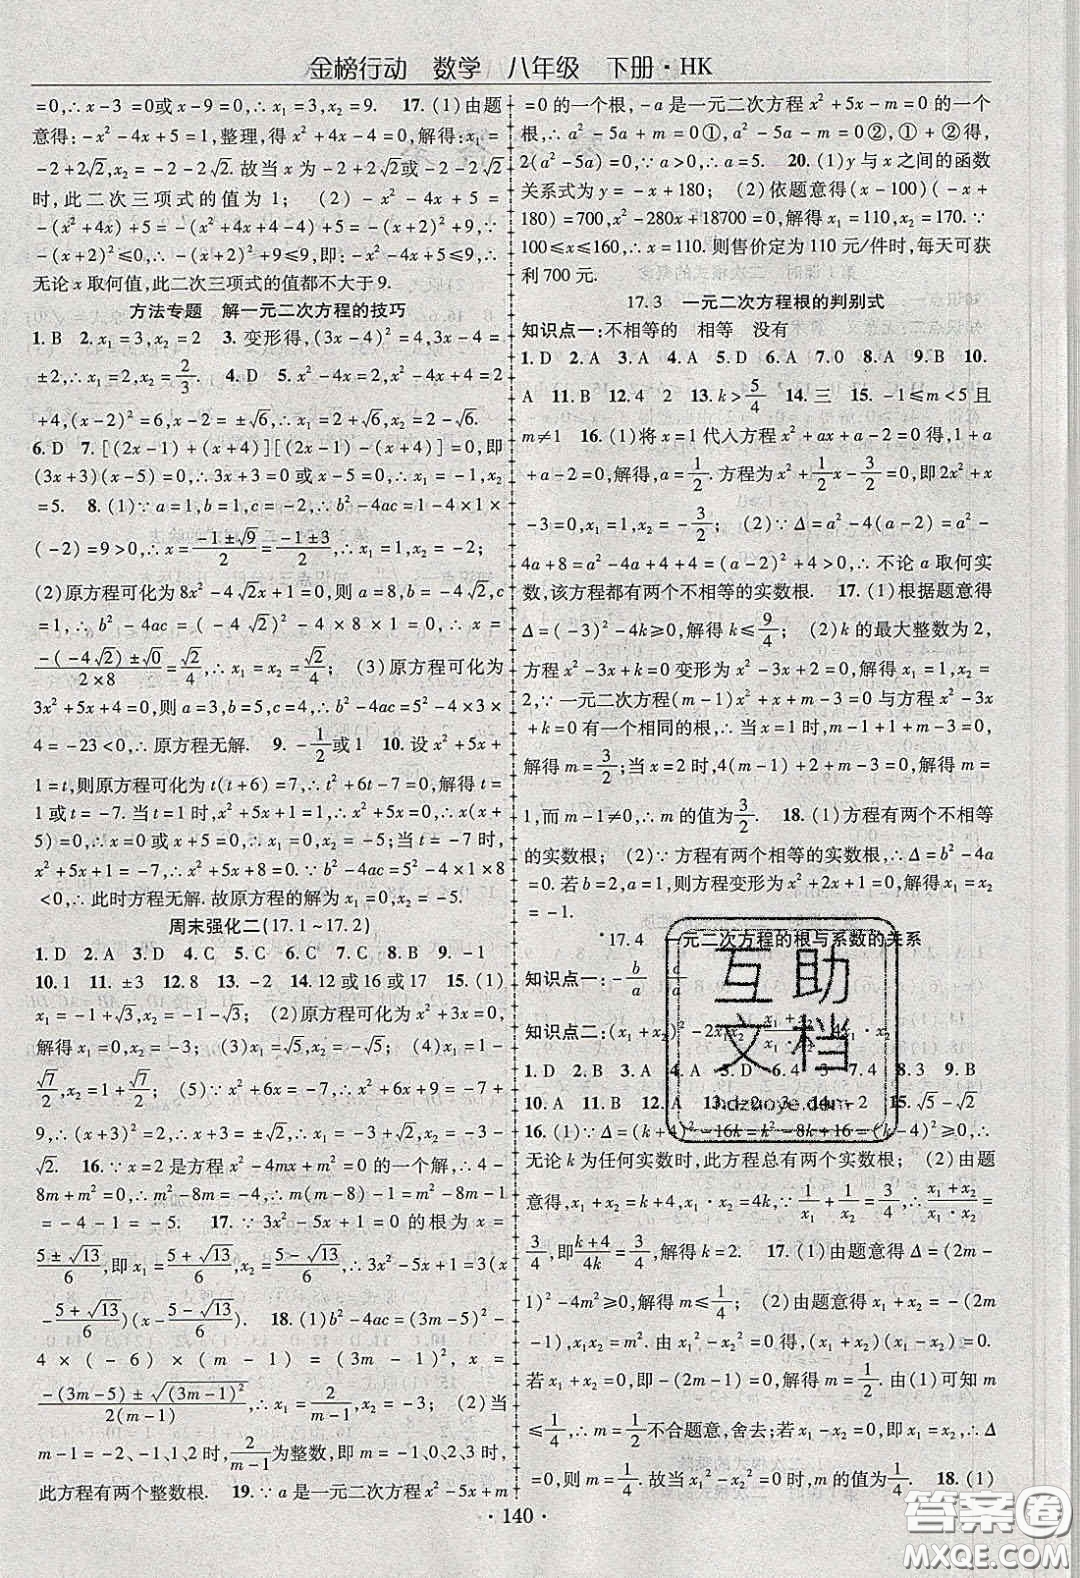 金榜行动 数学 八年级 下册·HK
=0,∴x-3=0或x-9=0,∴x₁=3,x₂=9. 17.(1)由题
意得:-x²-4x+5=1,整理,得x²+4x-4=0,解得:x₁=
-2+2√2,x₂=-2-2√2. 故当x为-2+2√2或-2-2√2
时,此二次三项式的值为1; (2)-x²-4x+5=
-(x²+4x)+5=-(x+2)²+4+5=-(x+2)²+9;∵
-(x+2)²≤0,∴-(x+2)²+9≤9;即:-x²-4x+5≤9;
无论x取何值,此二次三项式的值都不大于9.
方法专题 解一元二次方程的技巧
1.B 2.x₁=3,x₂=2 3.变形得,(3x-4)²=4,3x-4=
±2,∴x₁=2,x₂=2/3. 4.D 5.x²-4x=2,x²-4x+4=2
+4,(x-2)²=6,x-2=±√6,∴x₁=2+√6,x₂=2-√6.
6.D 7.[(2x-1)+(x+4)][(2x-1)-(x+4)]=0,即
(3x+3)(x-5)=0,∴3x+3=0或x-5=0,∴x₁=-1,x₂
=5. 8.(1)∵a=1,b=1,c=-2,∴b²-4ac=1-4×1×
(-2)=9>0,∴x=(-1±√9)/2=(-1±3)/2,∴x₁=1,x₂=-2;
(2)原方程可化为8x²-4√2x+1=0,∵a=8,b=-4√2,c
=1,∴b²-4ac=(-4√2)²-4×8×1=0,∴x=
(-(-4√2)±√0)/(2×8)=√2/4,∴x₁=x₂=√2/4; (3)原方程可化为
3x²+5x+4=0,∵a=3,b=5,c=4,∴b²-4ac=5²-4×3×
4=-23<0,∴原方程无解. 9.-1/2或1 10.设x²+5x+
1=t,则原方程可化为t(t+6)=7,∴t²+6t-7=0,解得t=
1或t=-7. 当t=1时,x²+5x+1=1,x²+5x=0,∴x(x+
5)=0,∴x=0或x+5=0,∴x₁=0,x₂=-5;当t=-7时,
x²+5x+1=-7,∴x²+5x+8=0,∴b²-4ac=5²-4×1×8
<0,此时方程无解. 故原方程的解为x₁=0,x₂=-5.
周末强化二(17.1~17.2)
1.D 2.A 3.D 4.C 5.C 6.C 7.C 8.B 9.-1
10.1 11.±3 12.8 13.-2 14.12或16或20 15.(1)
x₁=-1+√3,x₂=-1-√3; (2)原方程可化为x²+3x=0,
解得x₁=0,x₂=-3; (3)x₁=√5,x₂=-√5; (4)x₁=1-
√7/2,x₂=1+√7/2; (5)x²+6x=-7,∴x²+6x+9=-7+
9,∴(x+3)²=2,∴x+3=±√2,∴x₁=-3+√2,x₂=-3-
√2. 16.∵x=2是方程x²-4mx+m²=0的一个解,∴4-
8m+m²=0,∴m²-8m=-4,∴m(m-8)-1=m²-8m-1
=-4-1=-5. 17.∵3x²-5x+1=0的根为x=
(5±√13)/6,即x₁=(5+√13)/6,x₂=(5-√13)/6,∴3x²-5x+1=3(x
-(5+√13)/6)(x-(5-√13)/6) 18.(1)b²-4ac=(3m-5)²-
4×(-6)×(m-1)=(3m-1)²,x=
(-(3m-5)±√(3m-1)²)/(2(m-1)),∴x₁=2/(m-1),x₂=-3; (2)当
m-1=-2、-1、1、2时,2/(m-1)为整数,即m=-1、0、2、3时,
此方程有两个整数根. 19.∵a是一元二次方程x²-5x+m
=0的一个根,-a是一元二次方程x²+5x-m=0的一个
根,∴a²-5a+m=0①,a²-5a-m=0②,①+②得,
2(a²-5a)=0,∵a>0,∴a=5. 20.(1)y与x之间的函数
关系式为y=-x+180; (2)依题意得(x-100)(-x+
180)=700,x²-280x+18700=0,解得x₁=110,x₂=170.∵
100≤x≤160,∴x=110. 则售价定为110元/件时,每天可获
利700元.
17.3 一元二次方程根的判别式
知识点一:不相等的 相等 没有
1.D 2.A 3.A 4.A 5.D 6.A 7.0 8.A 9.B 10.
A 11.B 12.4 2 13.k>5/4 14.三 15.-1≤m<5且
m≠1 16.(1)将x=1代入方程x²+ax+a-2=0得,1+a
+a-2=0,解得,a=1/2. 方程为x²+1/2x-3/2=0,即2x²+x
-3=0,x₁=1,x₂=-3/2; (2)∵Δ=a²-4(a-2)=a²-
4a+8=a²-4a+4+4=(a-2)²+4>0,∴不论a取何实
数,该方程都有两个不相等的实数根. 17.(1)根据题意得
Δ=(-3)²-4k≥0,解得k≤9/4; (2)k的最大整数为2,
方程x²-3x+k=0变形为x²-3x+2=0,解得x₁=1,x₂=
2,∵一元二次方程(m-1)x²+x+m-3=0与方程x²-3x
+k=0有一个相同的根,∴当x=1时,m-1+1+m-3=0,
解得m=3/2;当x=2时,4(m-1)+2+m-3=0,解得m=
1,而m-1≠0,∴m的值为3/2. 18.(1)方程有两个不相等
的实数根; (2)∵方程有两个相等的实数根,∴Δ=b²-4a
=0. 若b=2,a=1,则方程变形为x²+2x+1=0,解得x₁=x₂
=-1.
17.4 一元二次方程的根与系数的关系
知识点一:-b/a c/a
知识点二:(x₁+x₂)²-2x₁x₂
1.D 2.B 3.A 4.A 5.D 6.4 3 7.4 8.A 9.B
10.A 11.B 12.A 13.-2 -3 14.-2 15.√5-√2
16.(1)∵Δ=(k+4)²-16k=k²-8k+16=(k-4)²≥0,∴
无论k为任何实数时,此方程总有两个实数根; (2)由题
意得,x₁+x₂=k+4,x₁·x₂=4k,∵1/x₁+1/x₂=3/4,∴(x₁+x₂)/(x₁·x₂)=
3/4,即(k+4)/4k=3/4,解得k=2. 17.(1)由题意得Δ=(2m-
1)²-4m²≥0,解得m≤1/4; (2)由题意得x₁+x₂=-(2m-
1),x₁x₂=m². 由x₁²-x₂²=0得,(x₁+x₂)(x₁-x₂)=0.
若x₁+x₂=0,即-(2m-1)=0,解得m=1/2. 由(1)可知m
≤1/4,∴m=1/2不合题意,舍去;若x₁-x₂=0,即x₁=x₂,∴Δ
=0,解得m=1/4. 故当x₁²-x₂²=0时,m的值为1/4. 18.(1)
·140·
互助
文档
hdzuoye.com
答案圈
MXQE.COM